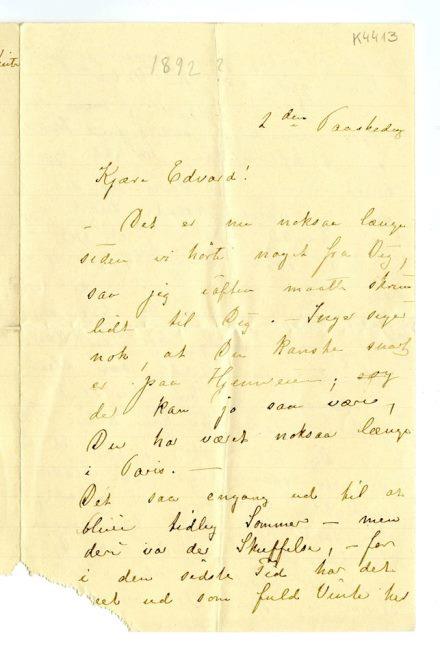 K4413
1892?
2den Paaskedag
Kjære Edvard!
– Det er nu noksaa længe
siden vi hørte noget fra Dig,
saa jeg iaften maatte skrive
lidt til Dig. – Inger siger
nok, at Du kanske snart
er paa Hjemveien; og
der kan jo saa være,
Du har været noksaa længe
i Paris. –
Det saa engang ud til at
blive tidlig Sommer – men
deri var der Skuffelse, – for
i den sidste Tid har det
seet ud som fuld Vinter her